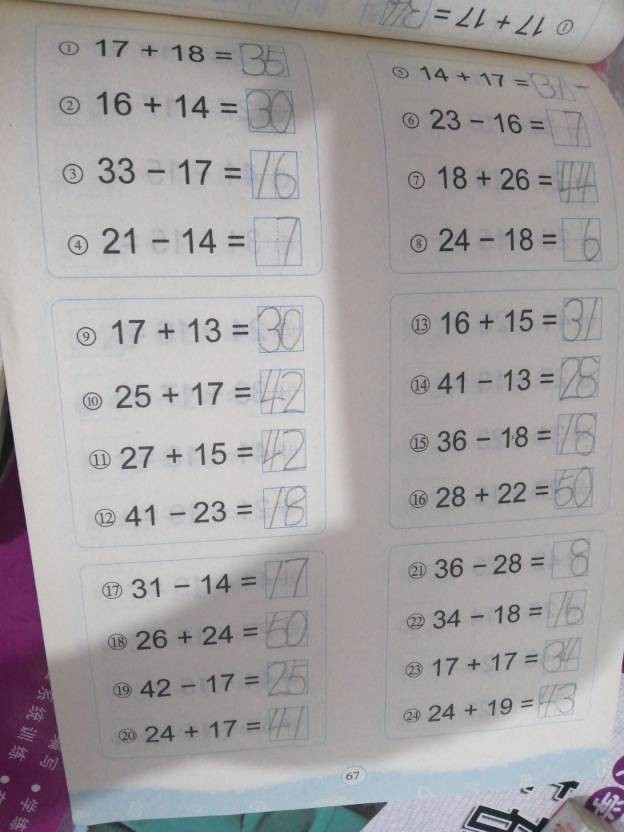 ① 17 + 17 = 34
① 17 + 18 = 35
② 16 + 14 = 30
③ 33 − 17 = 16
④ 21 − 14 = 7
⑤ 14 + 17 = 31
⑥ 23 − 16 = 7
⑦ 18 + 26 = 44
⑧ 24 − 18 = 6
⑨ 17 + 13 = 30
⑩ 25 + 17 = 42
⑪ 27 + 15 = 42
⑫ 41 − 23 = 18
⑬ 16 + 15 = 31
⑭ 41 − 13 = 28
⑮ 36 − 18 = 18
⑯ 28 + 22 = 50
⑰ 31 − 14 = 17
⑱ 26 + 24 = 50
⑲ 42 − 17 = 25
⑳ 24 + 17 = 41
㉑ 36 − 28 = 8
㉒ 34 − 18 = 16
㉓ 17 + 17 = 34
㉔ 24 + 19 = 43
67
系统训练
编写 • 学练